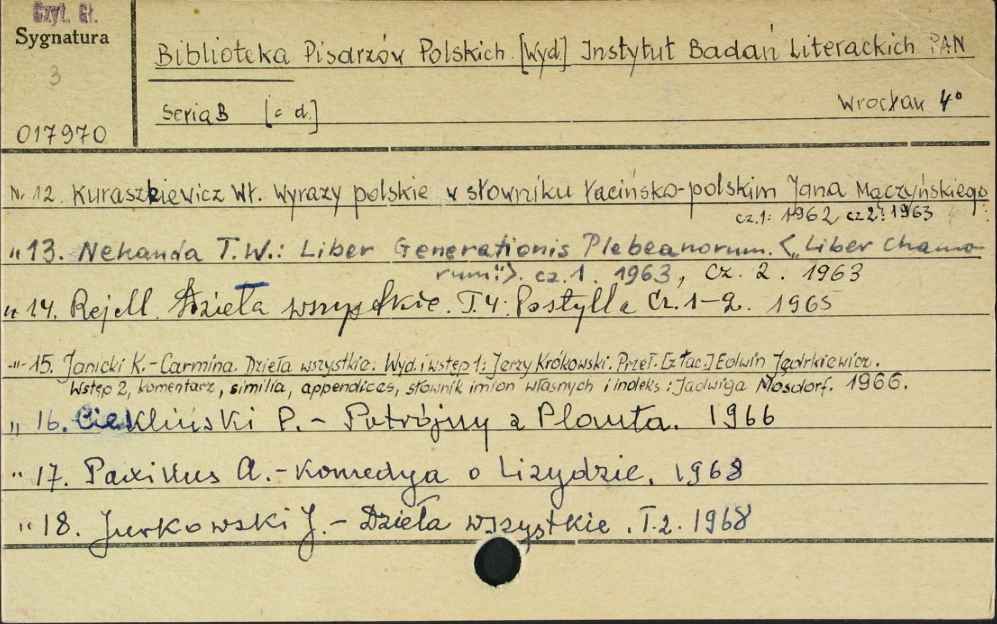 Czyt. Gł.
Sygnatura
3
017970
Biblioteka Pisarzów Polskich [Wyd] Instytut Badań Literackich PAN
Seria B [c d.] Wrocław 4°
Nr 12. Kuraszkiewicz Wł. Wyrazy polskie w słowniku łacińsko-polskim Jana Mączyńskiego
cz.1: 1962 cz 2: 1963
" 13. Nekanda T.W.: Liber Generationis Plebeanorum. <"Liber Chamo-
rum">. cz. 1. 1963, cz. 2. 1963
" 14. Rej M. Dzieła wszystkie. T.4: Postylla Cz. 1-2. 1965
-"- 15. Janicki K. - Carmina. Dzieła wszystkie. Wyd. i wstęp 1: Jerzy Krókowski. Przeł. [z łac.] Edwin Jędrkiewicz.
Wstęp 2, komentarz, similia, appendices, słownik imion własnych i indeks: Jadwiga Mosdorf. 1966.
" 16. Ciekliński P. - Potrójny z Plauta. 1966
" 17. Paxillus A. - Komedya o Lizydzie. 1968
" 18. Jurkowski J. - Dzieła wszystkie. T.2. 1968